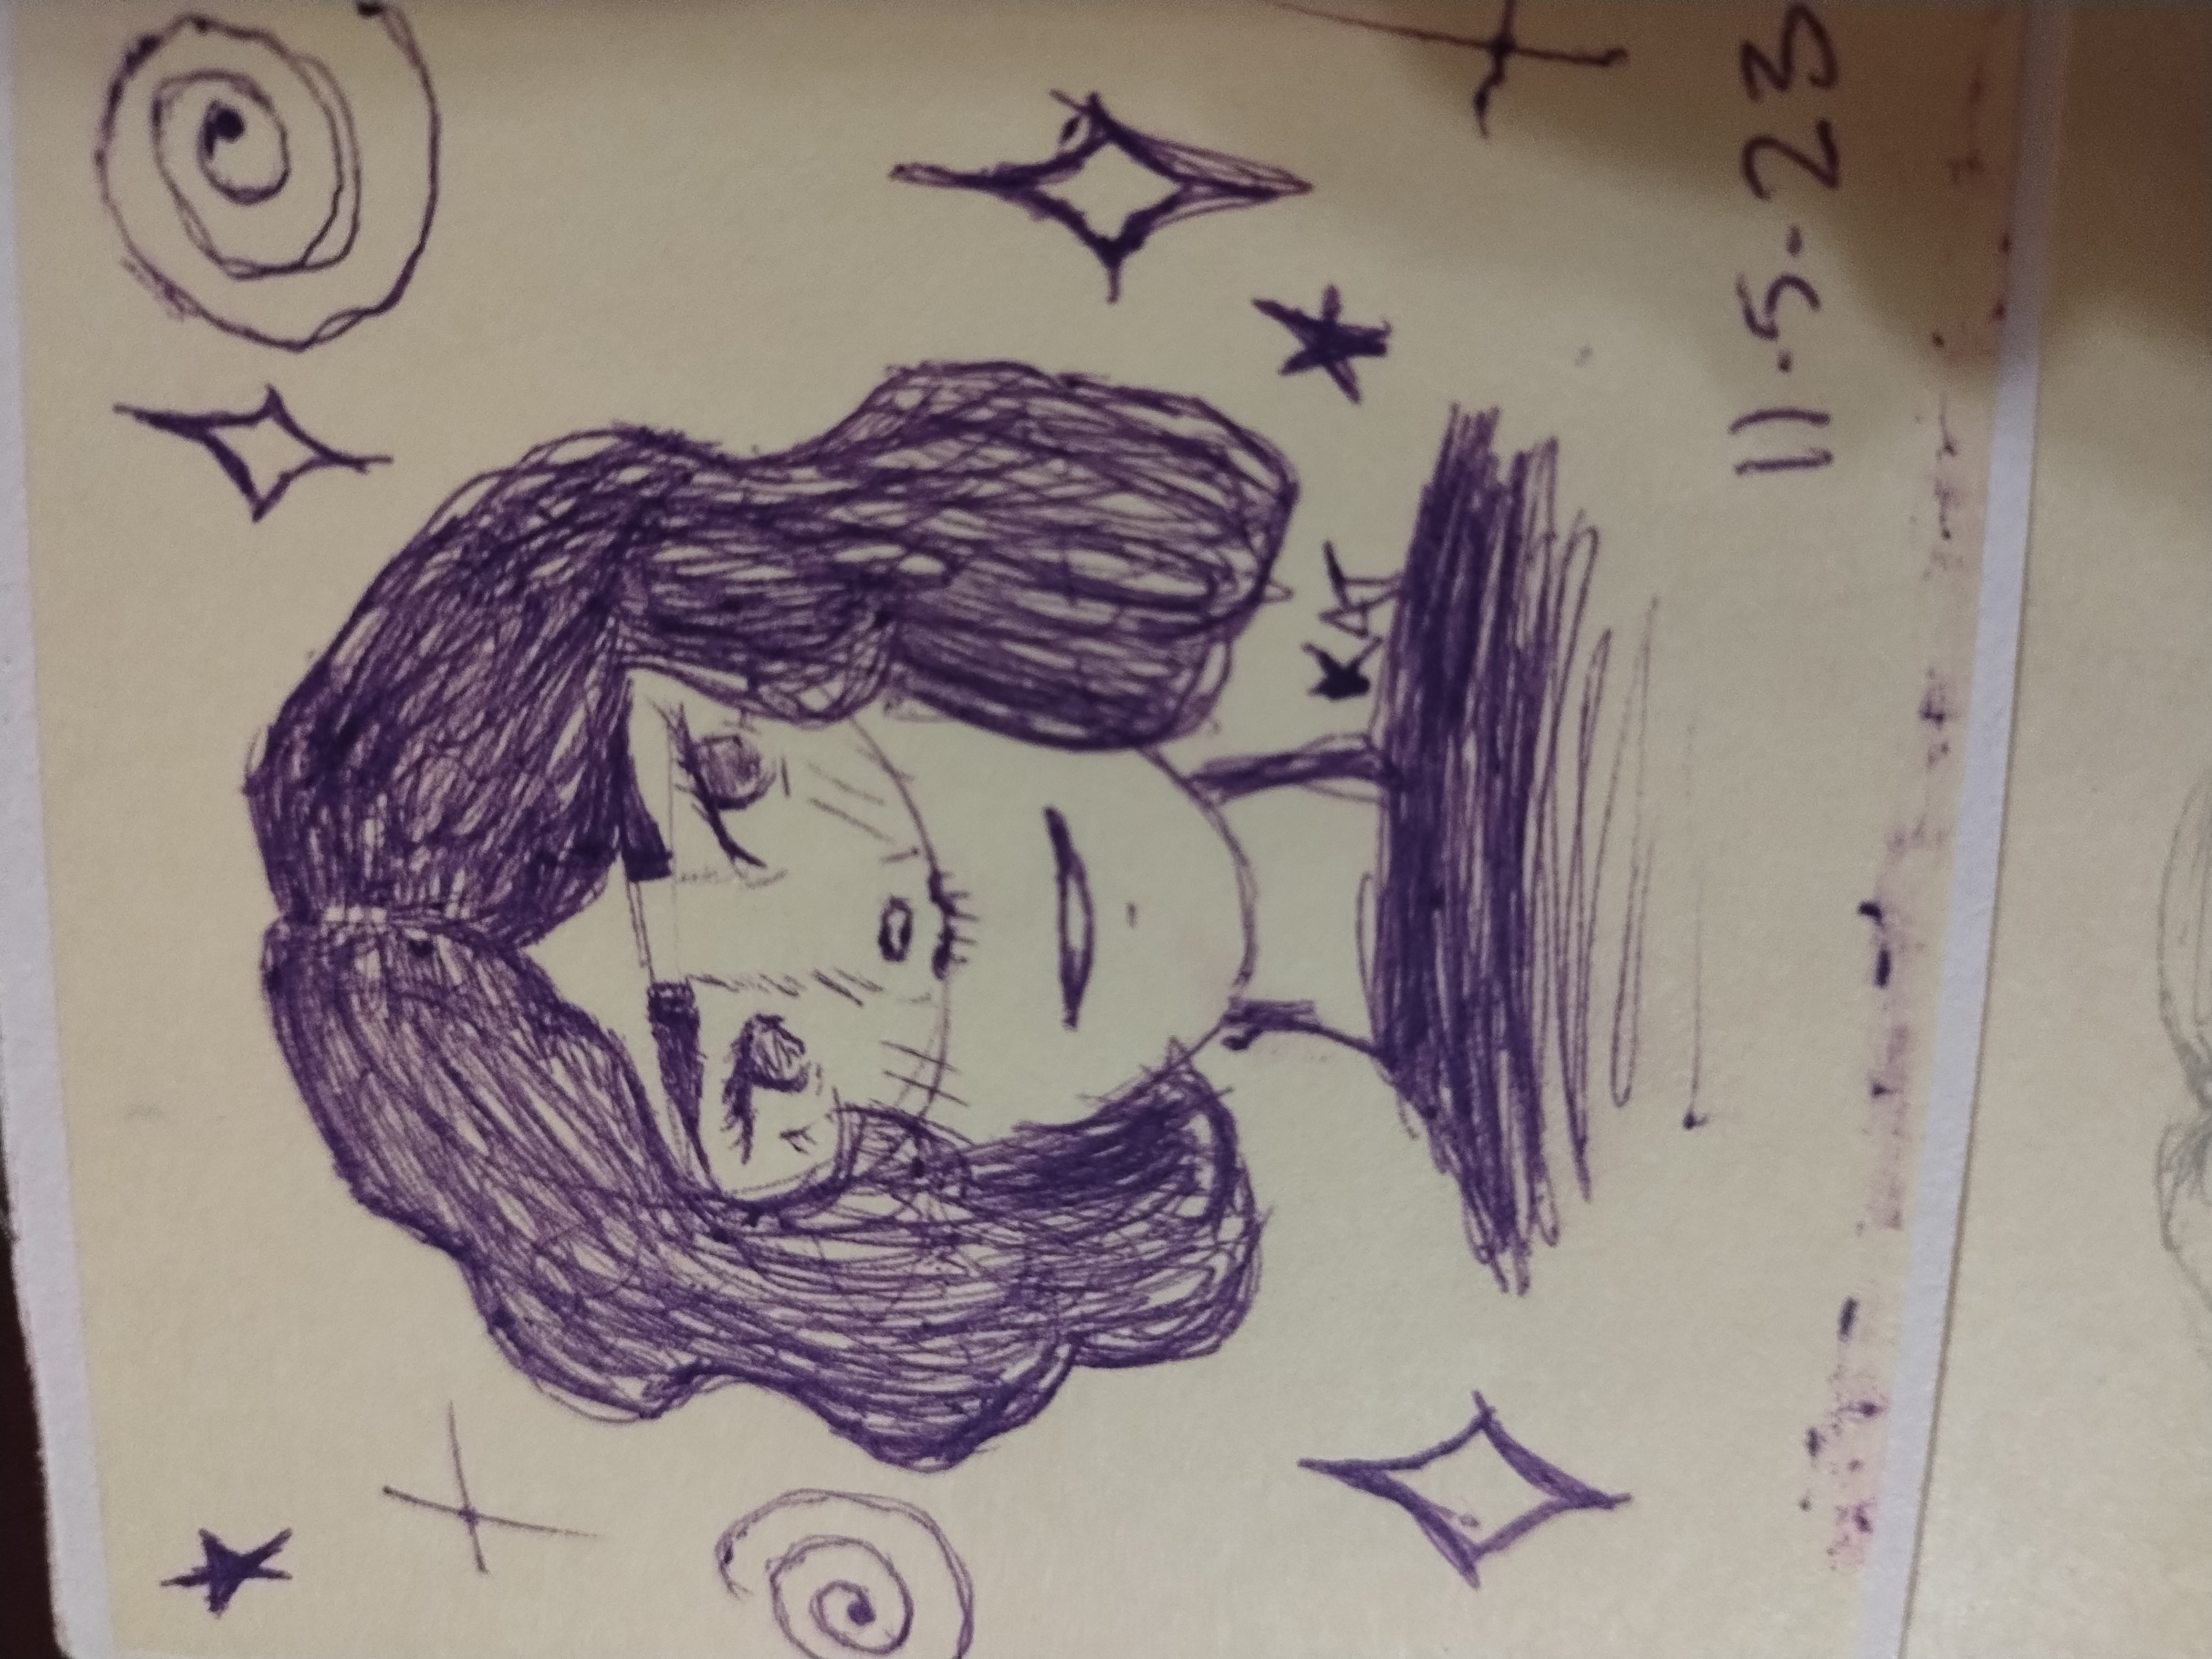 KAT
11-5-23